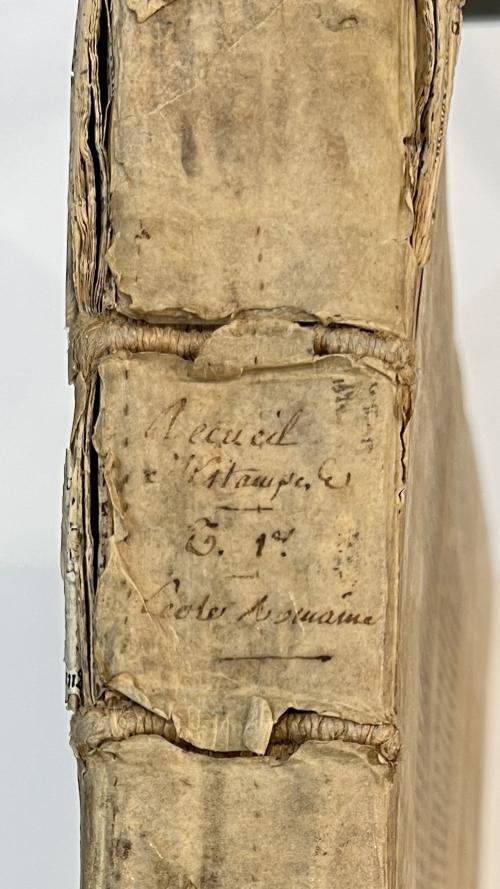 Recueil
d'Estampes
T. 1er.
École Romaine